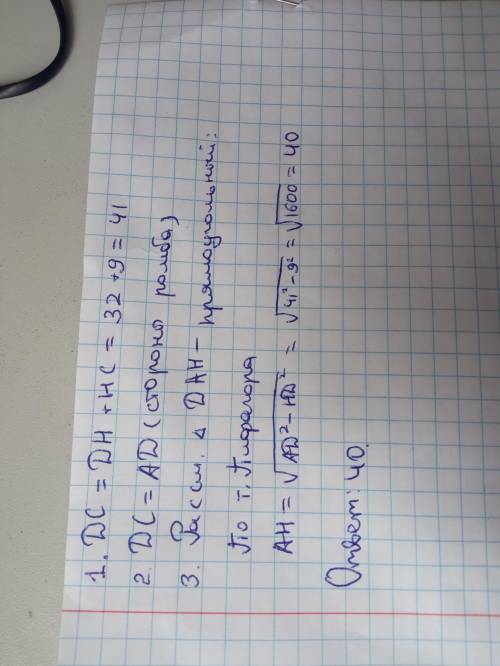 1. DC = DH + HC = 32 + 9 = 41
2. DC = AD (стороны ромба)
3. Рассм. △ DAH - прямоугольный:
По т. Пифагора
AH = √AD² - HD² = √41² - 9² = √1600 = 40
Ответ: 40.